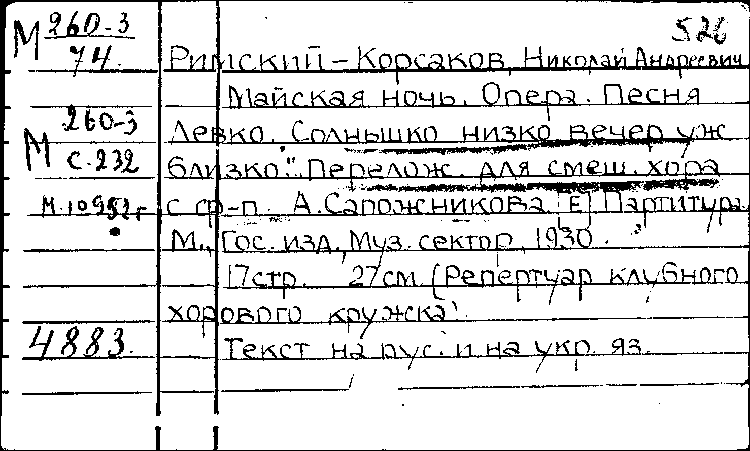 М 260-3
74.
526
Римский-Корсаков, Николай Андреевич
Майская ночь. Опера. Песня
М 260-3
С.232
Левко. "Солнышко низко вечер уж
близко". Перелож. для смеш. хора
М.10952г
с ф-п. А.Сапожникова. [Е] Партитура
М., Гос. изд., Муз. сектор, 1930.
17стр. 27см. (Репертуар клубного
хорового кружка).
4883.
Текст на рус. и на укр. яз.